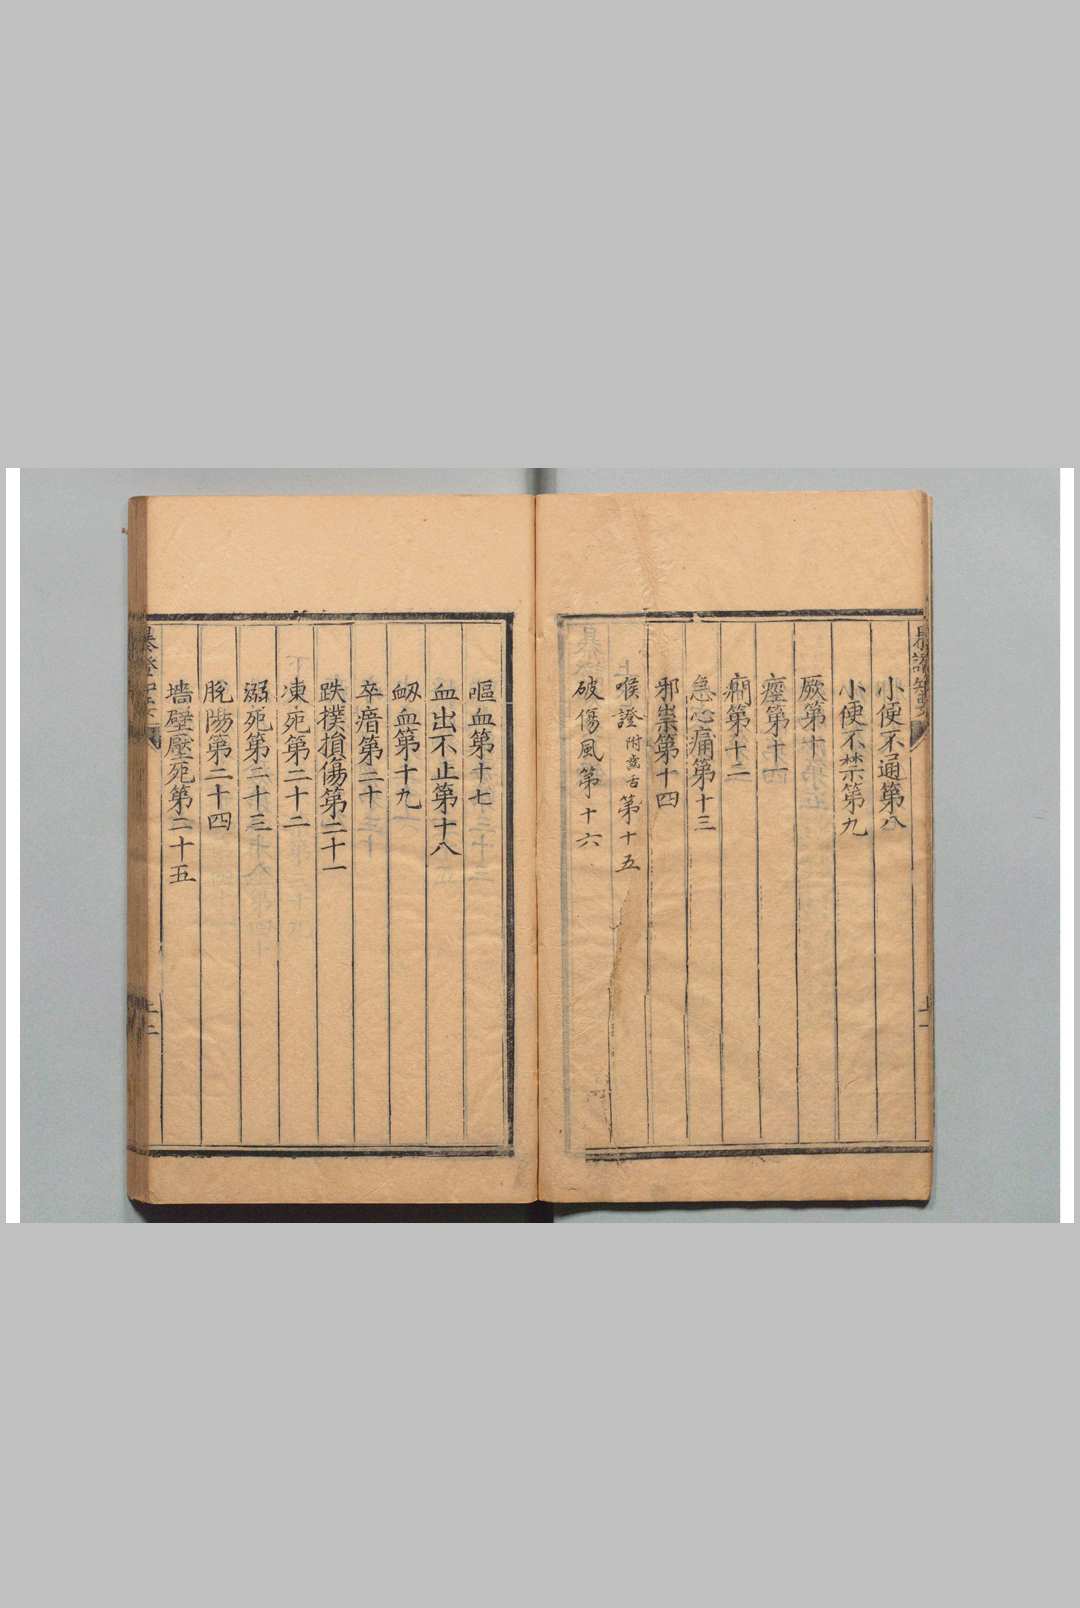 小便不通第八
小便不禁第九
厥第十
痙第十一
癎第十二
急心痛第十三
邪祟第十四
喉證附齒舌第十五
破傷風第十六
嘔血第十七
血出不止第十八
衂血第十九
卒瘖第二十
跌撲損傷第二十一
凍死第二十二
溺死第二十三
脫陽第二十四
墻壁壓死第二十五